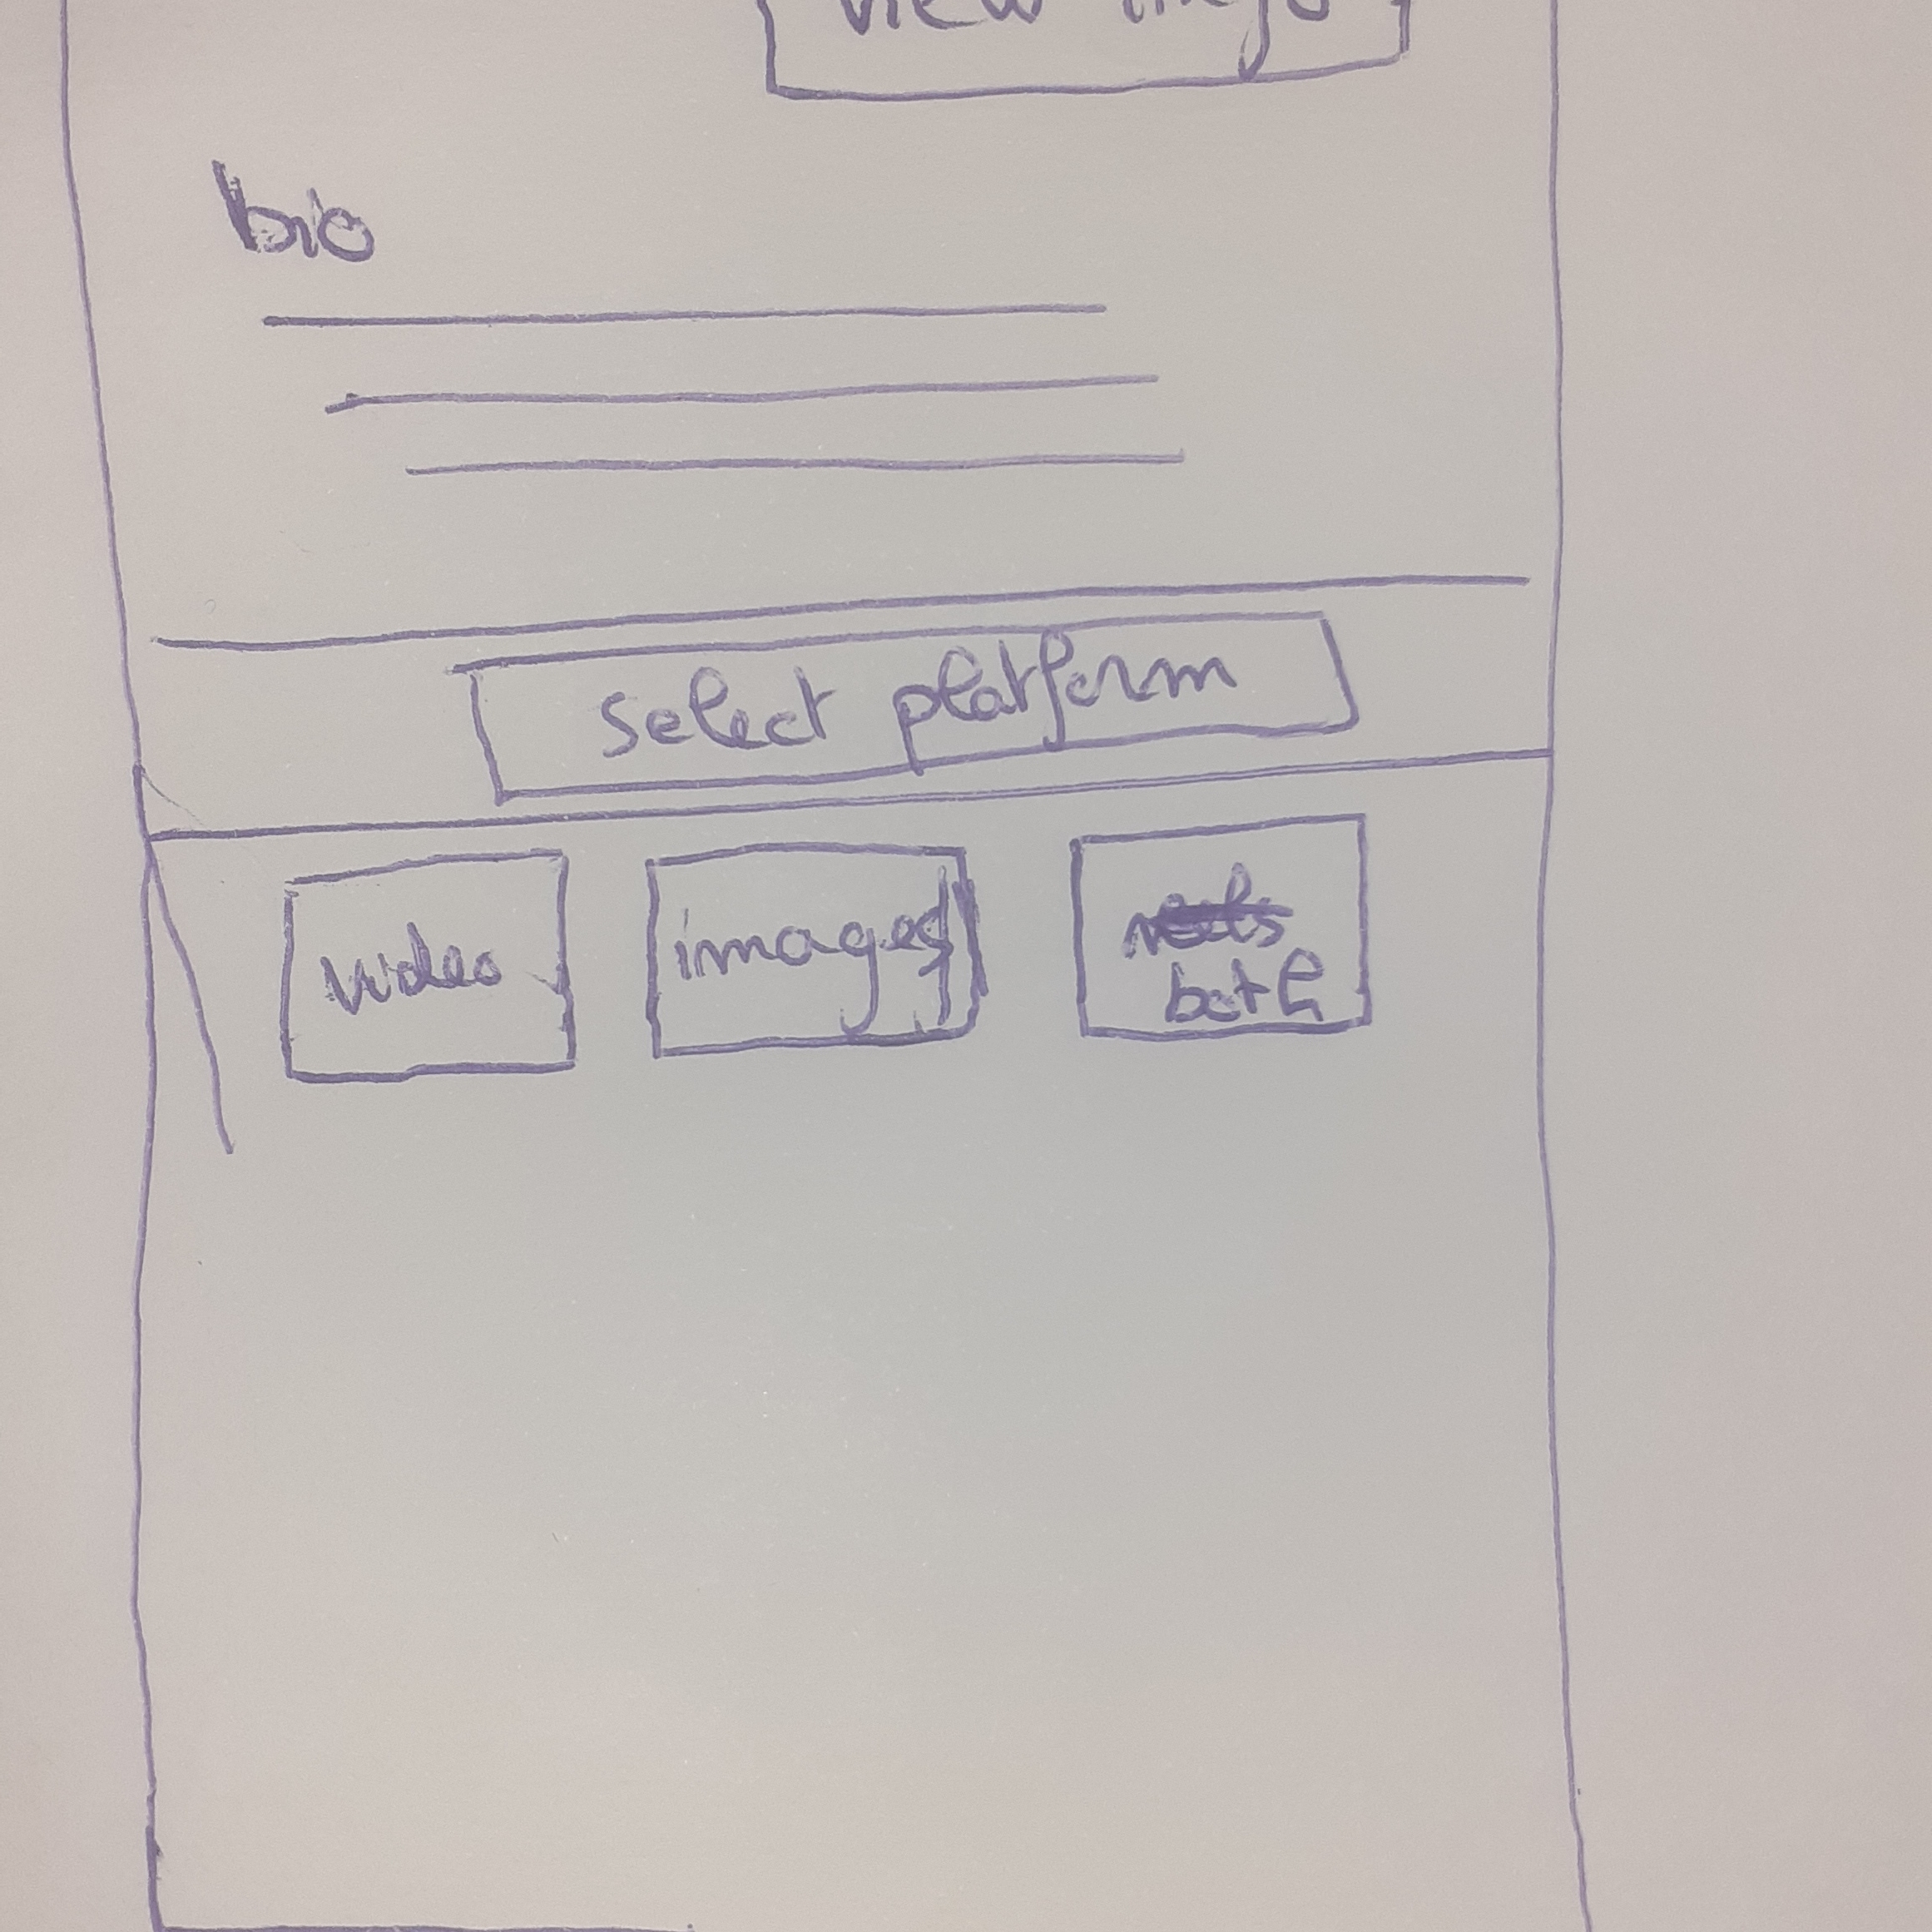 view info
bio
select platform
video
images
reels
both